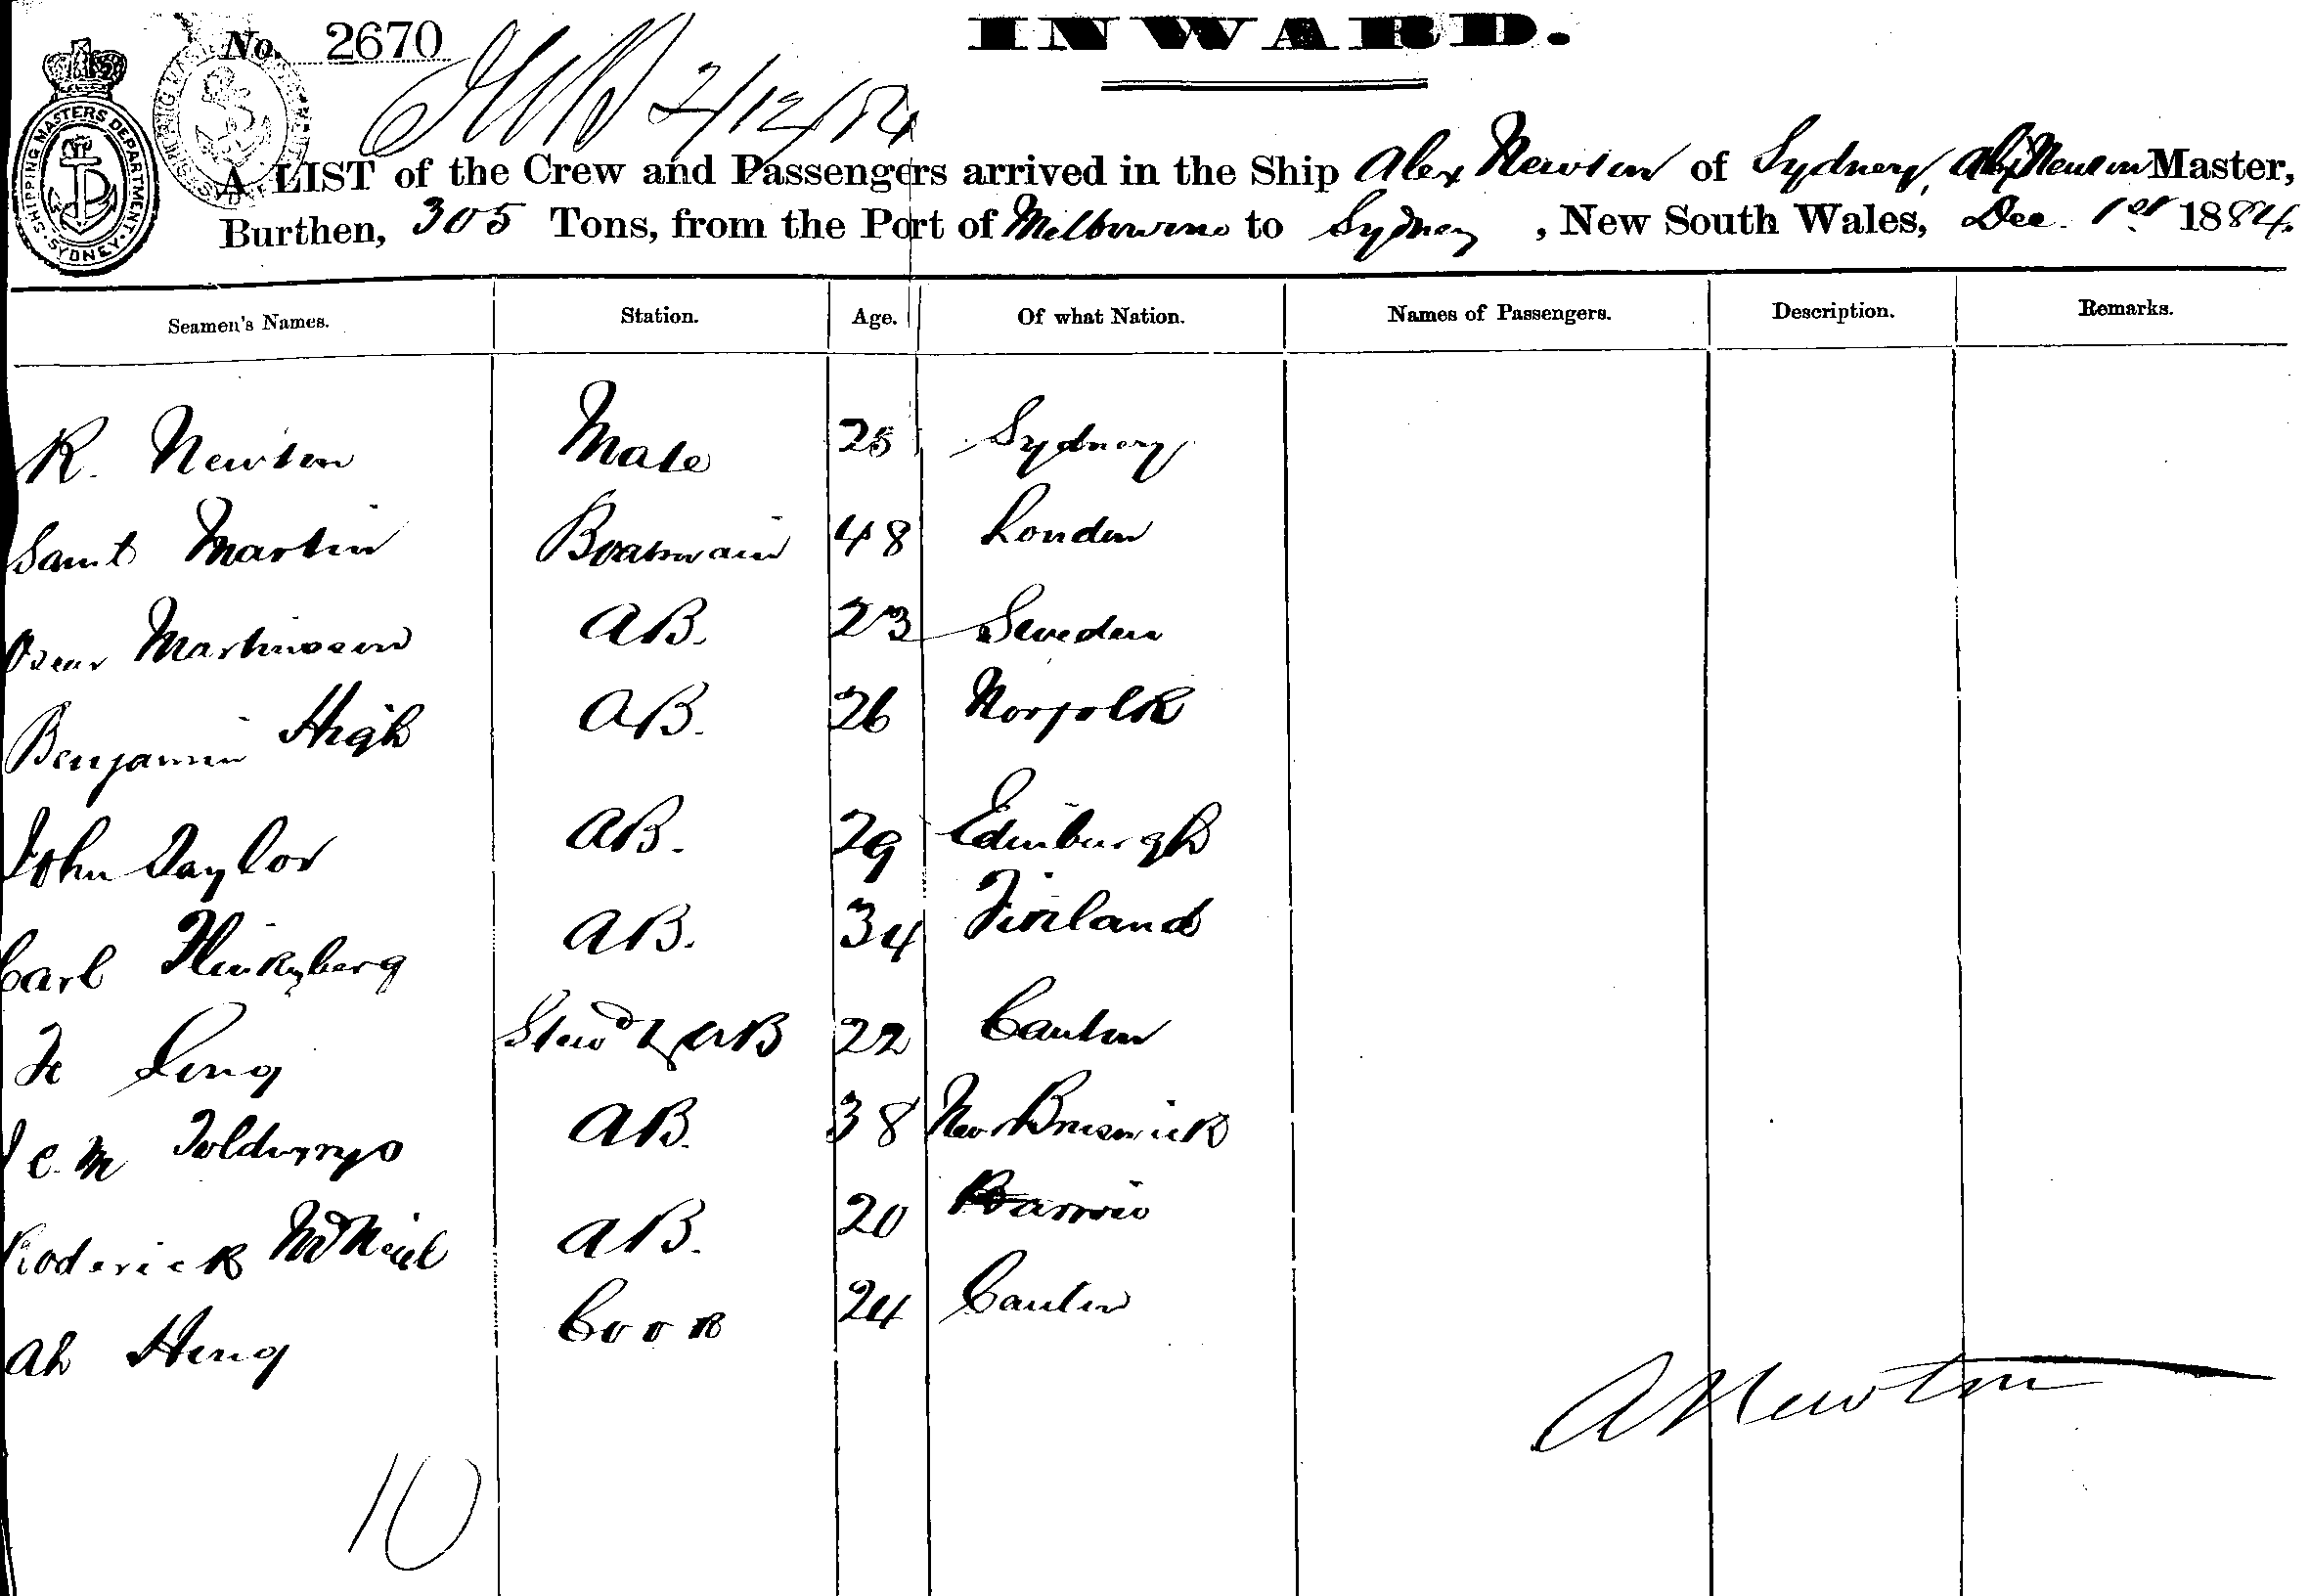 No. 2670
INWARD.
2/12/84
SHIPPING MASTERS DEPARTMENT SYDNEY
A LIST of the Crew and Passengers arrived in the Ship Alex Newton of Sydney, Alex Newton Master,
Burthen, 305 Tons, from the Port of Melbourne to Sydney, New South Wales, Dec. 1st 1884.
Seamen's Names. Station. Age. Of what Nation. Names of Passengers. Description. Remarks.
R. Newton Mate 25 Sydney
Saml Martin Boatswain 48 London
Oscar Martinson AB. 23 Sweden
Benjamin High AB. 26 Norfolk
John Taylor AB. 29 Edinburgh
Carl AB. 34 Finland
Stewd & AB 22 Canton
AB. 38 New Brunswick
Roderick McNeil AB. 20
Ah Hing Cook 24 Canton
A Newton
10